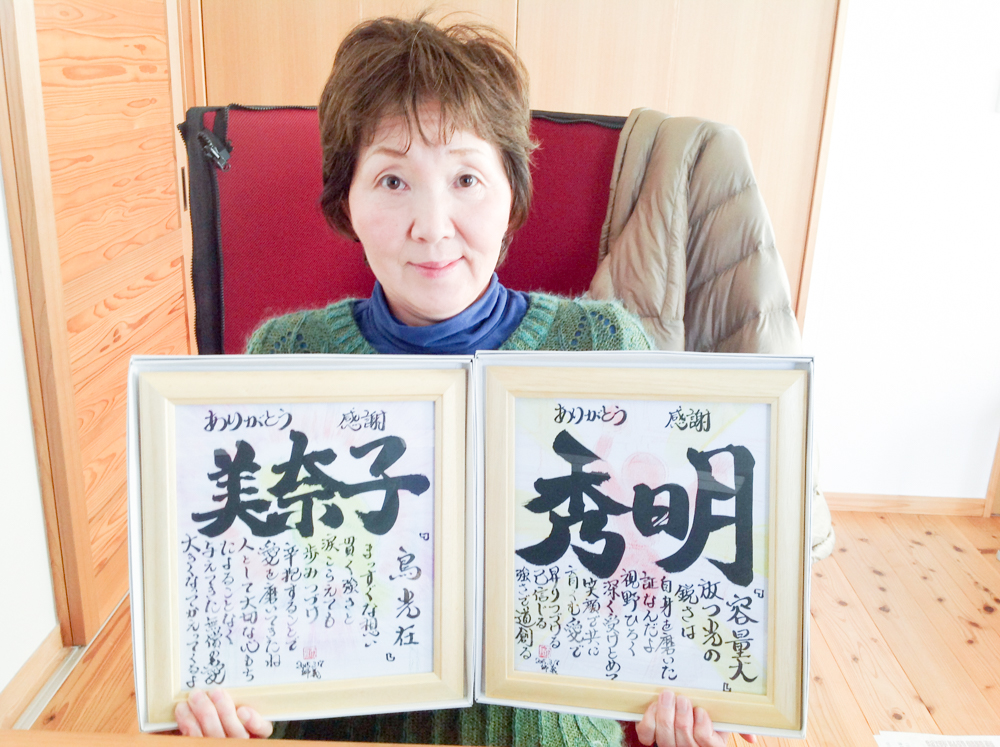 ありがとう 感謝
美奈子
まっすぐな想い
貫く強さと
涙こらえても
辛抱することで
愛を磨いてきたね
人として大切な心もち
によることなく
与えてきた無償の愛
大きくなってかえってくるよ
ありがとう 感謝
秀明
『容量大』
放つ光の
鋭さは
自身を磨いた
証なんだよ
視野ひろく
深く受けとめつ
笑顔で共に
育くむ愛で
昇りつづける
己信じる
強さで道創る